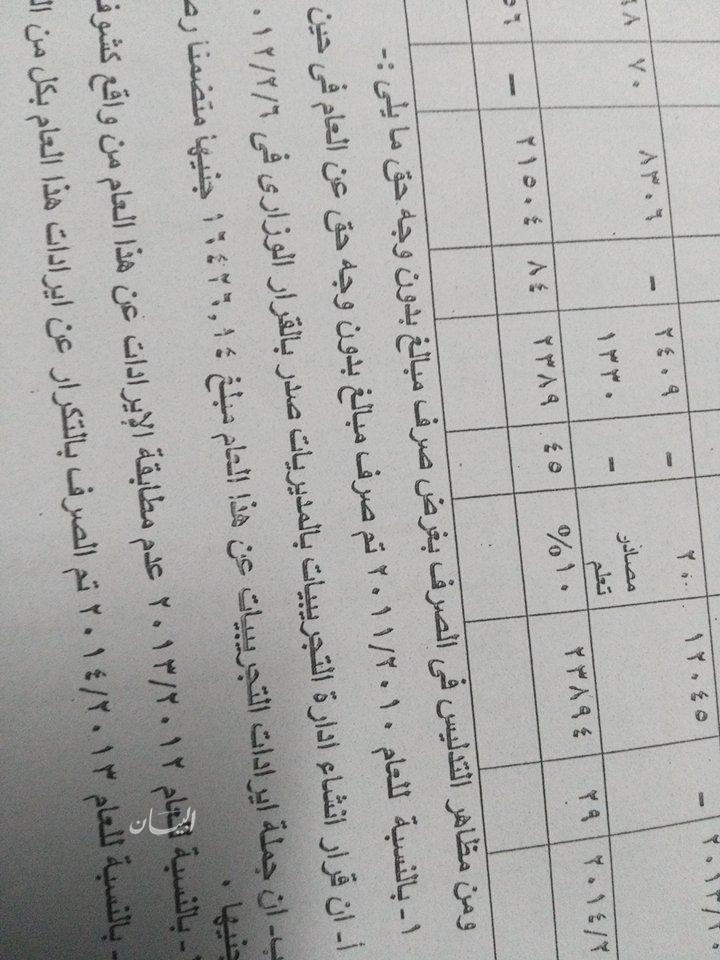 ٢٠١٣/٢٠ - ١٢٠٤٥ ٢٠ - ٢٤٠٩ - ٨٣٠٦ ٧٠
مصادر تعلم - ١٣٣٠
٢٠١٤/٢ ٢٩ ٢٣٨٩٤ ١٠% ٤٥ ٢٣٨٩ ٨٤ ٢١٥٠٤ -
ومن مظاهر التدليس فى الصرف بغرض صرف مبالغ بدون وجه حق ما يلى :-
١- بالنسبة للعام ٢٠١١/٢٠١٠ تم صرف مبالغ بدون وجه حق عن العام فى حين
أ- ان قرار انشاء ادارة التجريبيات بالمديريات صدر بالقرار الوزارى فى ١٢/٢/٦.
ب- ان جملة ايرادات التجريبيات عن هذا العام مبلغ ١٦٤٢٦,١٤ جنيها متضمنا
جنيها .
- بالنسبة للعام ٢٠١٣/٢٠١٢ عدم مطابقة الإيرادات عن هذا العام من واقع
- بالنسبة للعام ٢٠١٤/٢٠١٣ تم الصرف بالتكرار عن ايرادات هذا العام بكل من
البيان